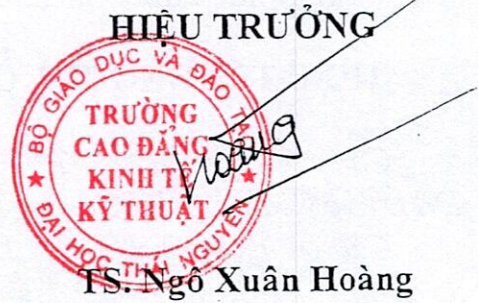 HIỆU TRƯỞNG
BỘ GIÁO DỤC VÀ ĐÀO TẠO
TRƯỜNG
CAO ĐẲNG
KINH TẾ
KỸ THUẬT
ĐẠI HỌC THÁI NGUYÊN
Hoàng
TS. Ngô Xuân Hoàng